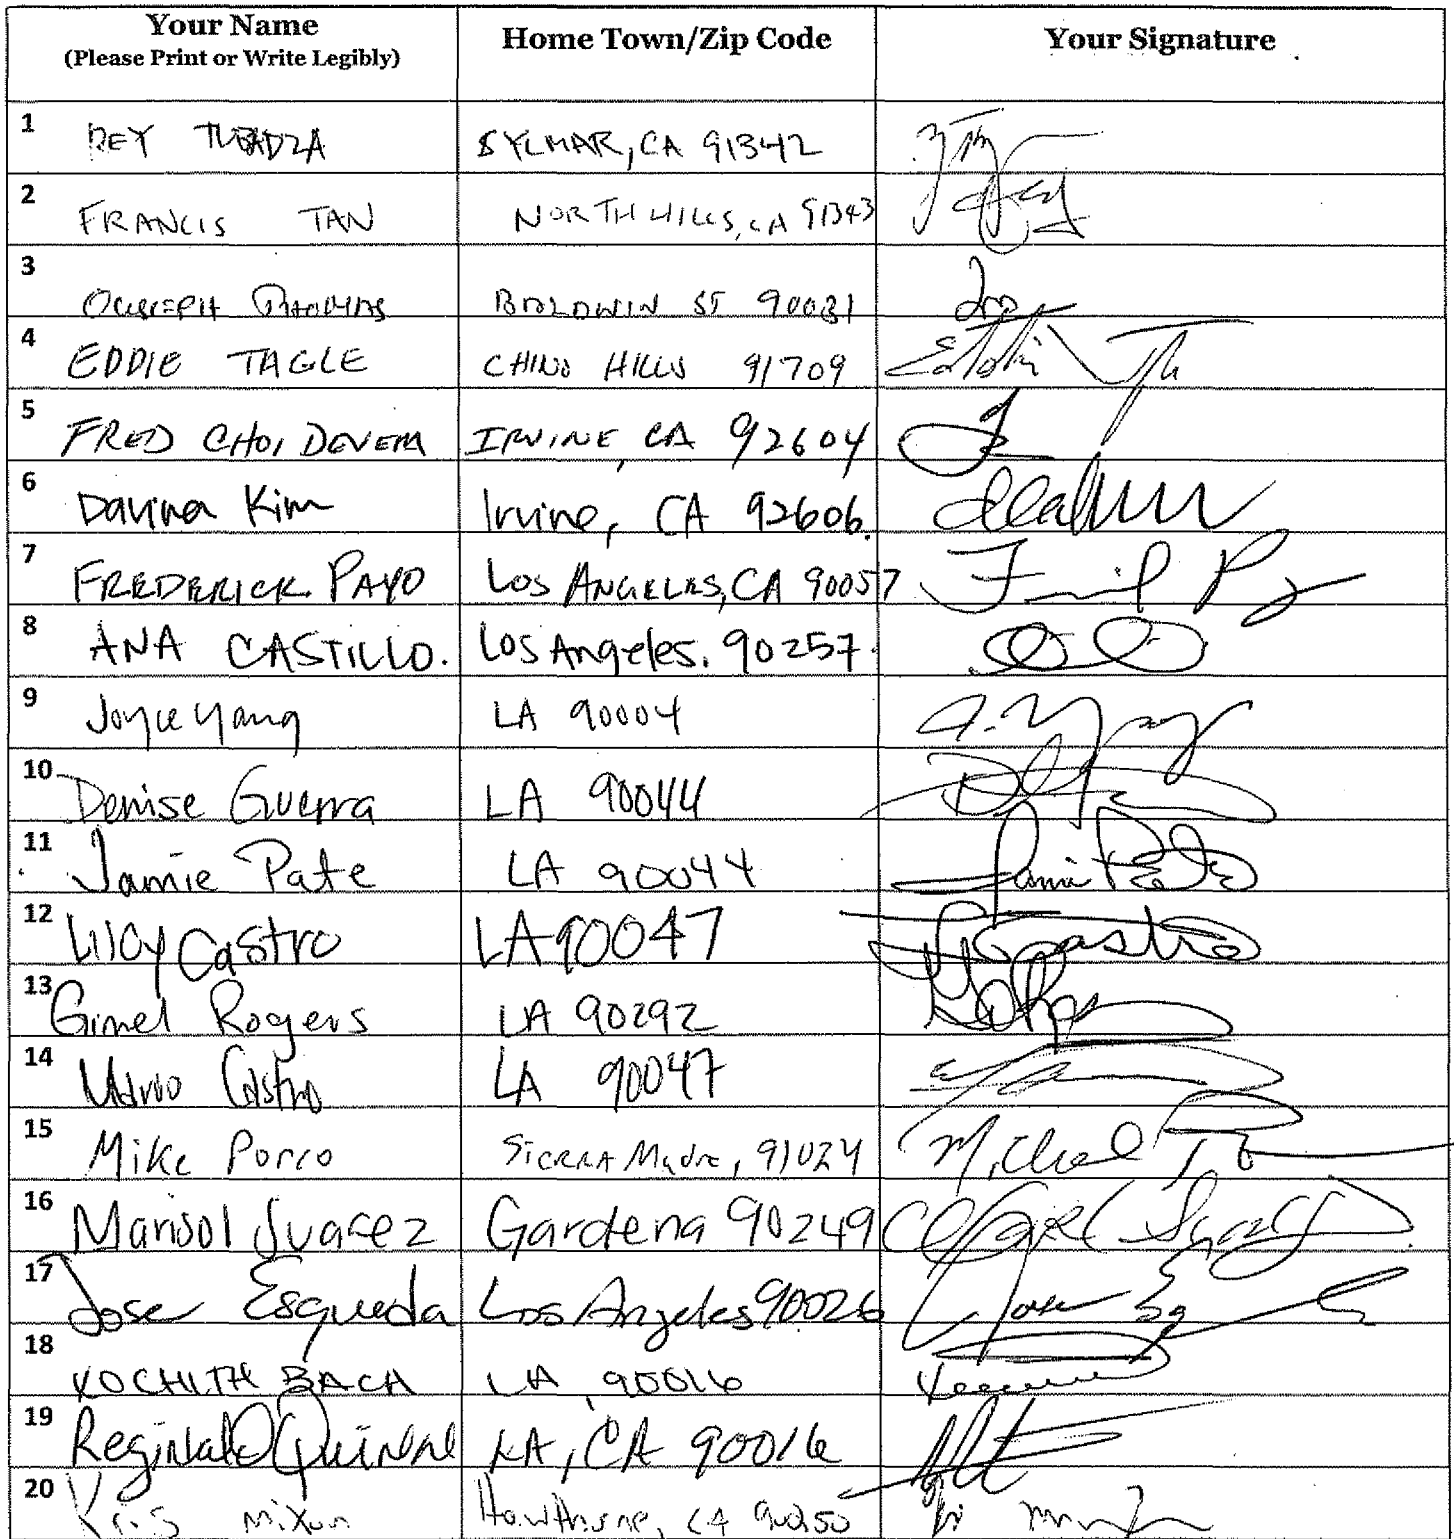 Your Name Home Town/Zip Code Your Signature
(Please Print or Write Legibly)
1 REY SYLMAR, CA 91342
2 FRANCIS TAN NORTH HILLS, CA 91343
3 OUSEPH THOMAS BALDWIN ST 90031
4 EDDIE TAGLE CHINO HILLS 91709
5 FRED CHOI DEVERA IRVINE, CA 92604
6 Davina Kim Irvine, CA 92606
7 FREDERICK PAYO LOS ANGELES, CA 90057
8 ANA CASTILLO. Los Angeles. 90257.
9 Joyce Yang LA 90004 J. Yang
10 Denise Guerra LA 90044
11 Jamie Pate LA 90044 Jamie Pate
12 Lilcy Castro LA 90047 Castro
13 Gimel Rogers LA 90292
14 Mario Castro LA 90047
15 Mike Porro Sierra Madre, 91024 Michael
16 Marisol Suarez Gardena 90249
17 Jose Esqueda Los Angeles 90026 Jose
18 XOCHITH BACA LA, 90016
19 Reginald Quinal LA, CA 90016
20 Kris Mixon Hawthorne, CA 90250